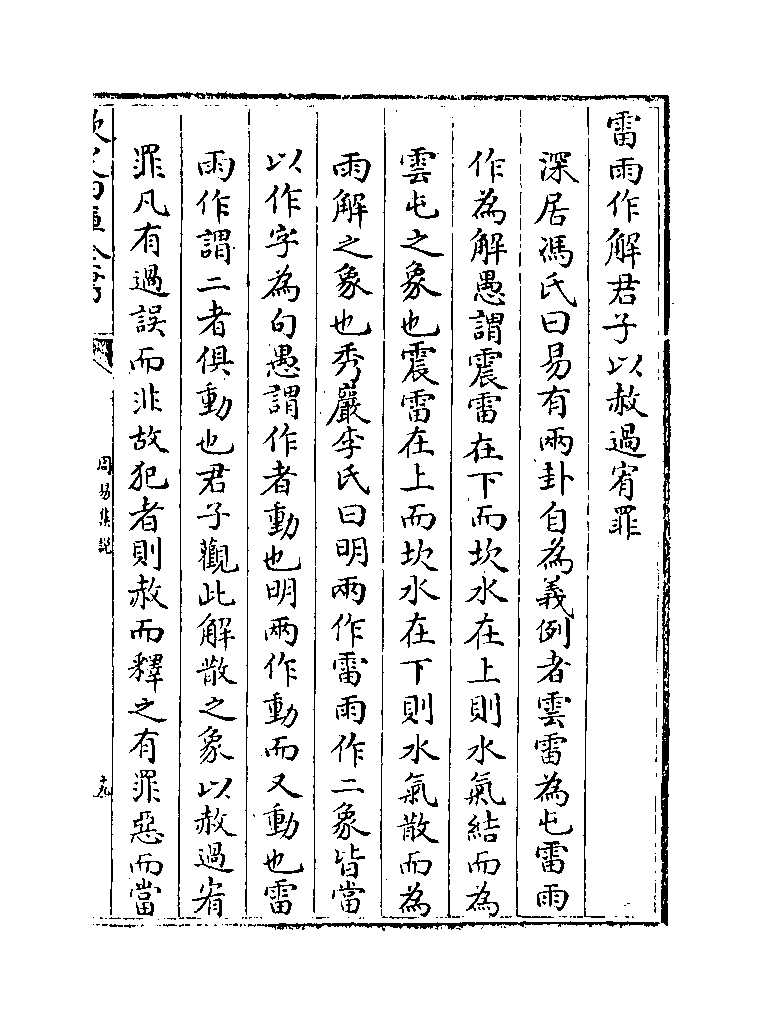 雷雨作解君子以赦過宥罪
深居馮氏曰易有兩卦自為義例者雲雷為屯雷雨
作為解愚謂震雷在下而坎水在上則水氣結而為
雲屯之象也震雷在上而坎水在下則水氣散而為
雨解之象也秀巖李氏曰明兩作雷雨作二象皆當
以作字為句愚謂作者動也明兩作動而又動也雷
雨作謂二者俱動也君子觀此解散之象以赦過宥
罪凡有過誤而非故犯者則赦而釋之有罪惡而當
周易集說